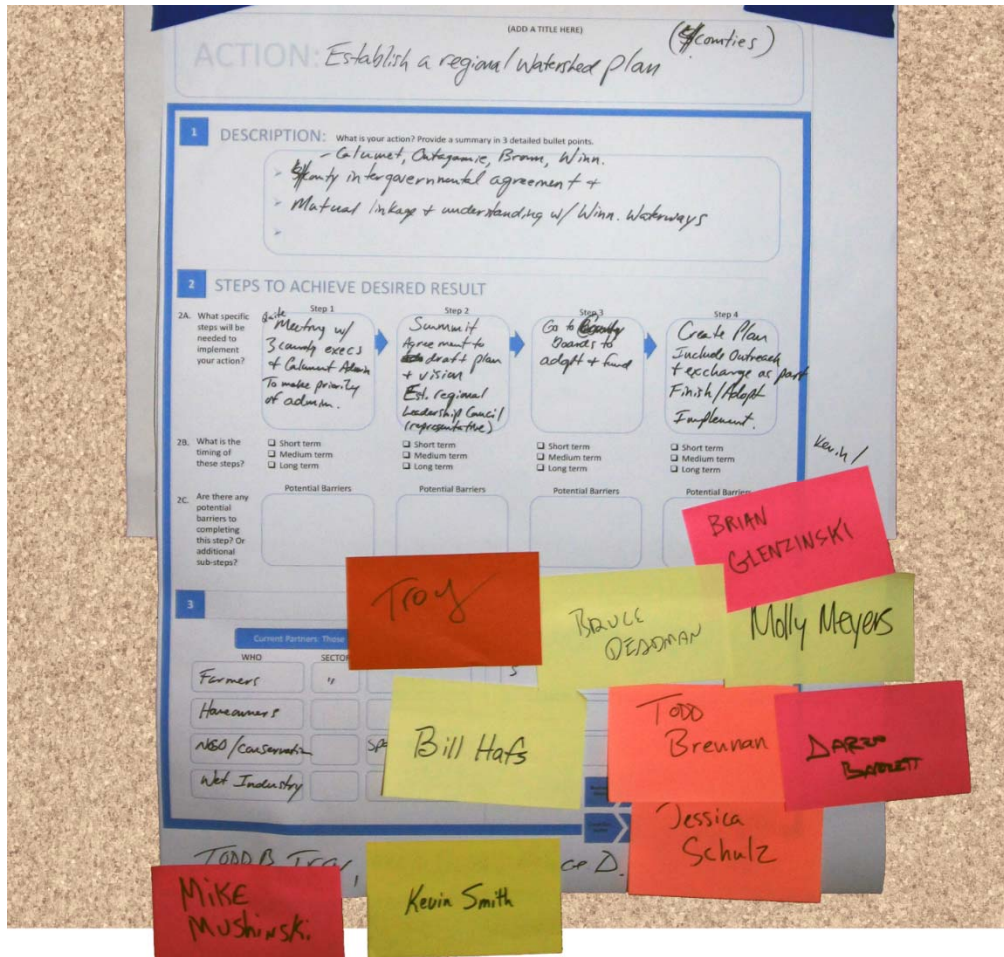 (ADD A TITLE HERE)
(counties)
ACTION: Establish a regional Watershed plan
1 DESCRIPTION: What is your action? Provide a summary in 3 detailed bullet points.
- Calumet, Outagamie, Brown, Winn.
county intergovernmental agreement +
Mutual linkage + understanding w/ Winn. Waterways
2 STEPS TO ACHIEVE DESIRED RESULT
2A. What specific
steps will be
needed to
implement
your action?
Step 1
Meeting w/
3 county execs
+ Calumet Admin
To make priority
of admin.
Step 2
Summit
Agreement to
draft plan
+ vision
Est. regional
Leadership Council
(representative)
Step 3
Go to County
Boards to
adopt + fund
Step 4
Create Plan
Include Outreach
+ exchange as part
Finish/Adopt
Implement.
2B. What is the
timing of
these steps?
Short term
Medium term
Long term
Short term
Medium term
Long term
Short term
Medium term
Long term
Short term
Medium term
Long term
Kevin /
2C. Are there any
potential
barriers to
completing
this step? Or
additional
sub-steps?
Potential Barriers
Potential Barriers
Potential Barriers
Potential Barriers
BRIAN
GLENZINSKI
Troy
BRUCE
DEADMAN
Molly Meyers
3
Current Partners: Those
WHO
SECTOR
Farmers "
Homeowners
NGO/conservation
Wet Industry
Bill Hafs
TODD
Brennan
BARRETT
Jessica
Schulz
TODD B, Troy,
ce D.
MIKE
MUSHINSKI
Kevin Smith